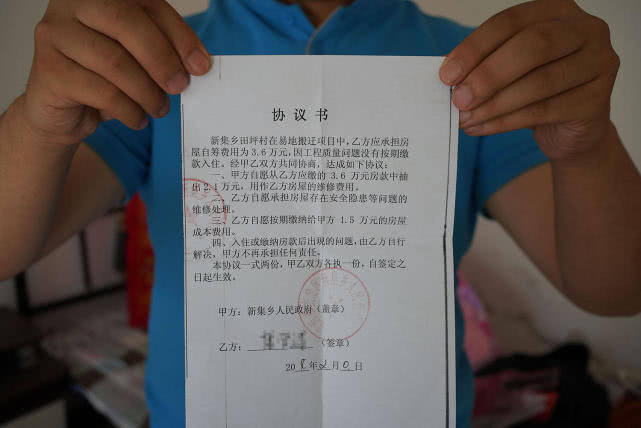 协 议 书
新集乡田坪村在易地搬迁项目中，乙方应承担房
屋自筹费用为 3.6 万元，因工程质量问题没有按期缴
款入住。经甲乙双方共同协商，达成如下协议：
一、甲方自愿从乙方应缴的 3.6 万元房款中抽
出 2.1 万元，用作乙方房屋的维修费用。
二、乙方自愿承担房屋存在安全隐患等问题的
维修处理。
三、乙方自愿按期缴纳给甲方 1.5 万元的房屋
成本费用。
四、入住或缴纳房款后出现的问题，由乙方自行
解决，甲方不再承担任何责任。
本协议一式两份，甲乙双方各执一份，自签定之
日起生效。
甲方：新集乡人民政府（盖章）
乙方：（签章）
20 年 月 日